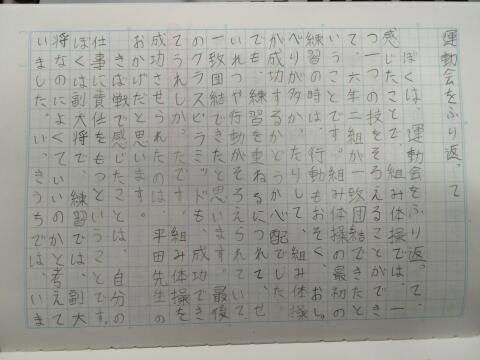 運動会をふり返って
ぼくは、運動会をふり返って、
感じたことで、組み体操では、一
つ一つの技をそろえることができ
て、六年二組が一致団結できたと
いうことです。組み体操の最初の
練習の時は、行動もおそく、おし
ゃべりが多かったりして、組み体操
が成功するかどうか心配でした。
でも、練習を重ねるにつれて、せ
いれつや行動がそろえられていて
一致団結できたと思います。最後
のクラスピラミッドも、成功でき
てうれしかったです。組み体操を
成功させられたのは、平田先生の
おかげだと思います。
きば戦で感じたことは、自分の
仕事に責任をもつということです。
ぼくは副大将で、練習では、副大
将なのによくていいのかと考えて
いました。いきうちでは、いま